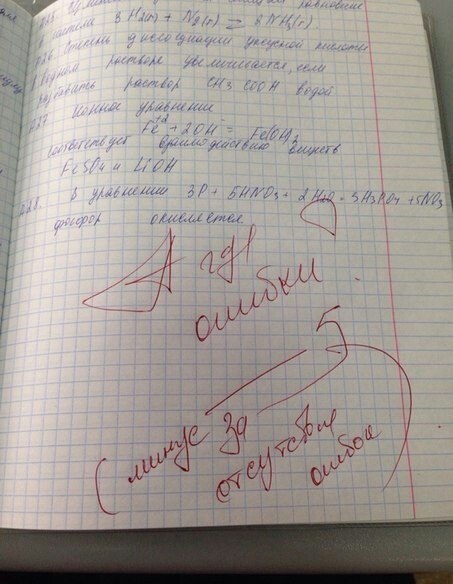 равновесие
системы 3H₂(г) + N₂(г) = 2NH₃(г).
А26 Степень диссоциации уксусной кислоты
в водном растворе увеличивается, если
разбавить раствор CH3COOH водой
А27 Ионное уравнение
Fe⁺² + 2OH⁻ = Fe(OH)₂
соответствует взаимодействию веществ
FeSO4 и LiOH
А28. В уравнении 3P + 5HNO3 + 2H2O = 3H3PO4 + 5NO
фосфор окисляется.
А где
ошибки
5
(минус за
отсутствие
ошибок)